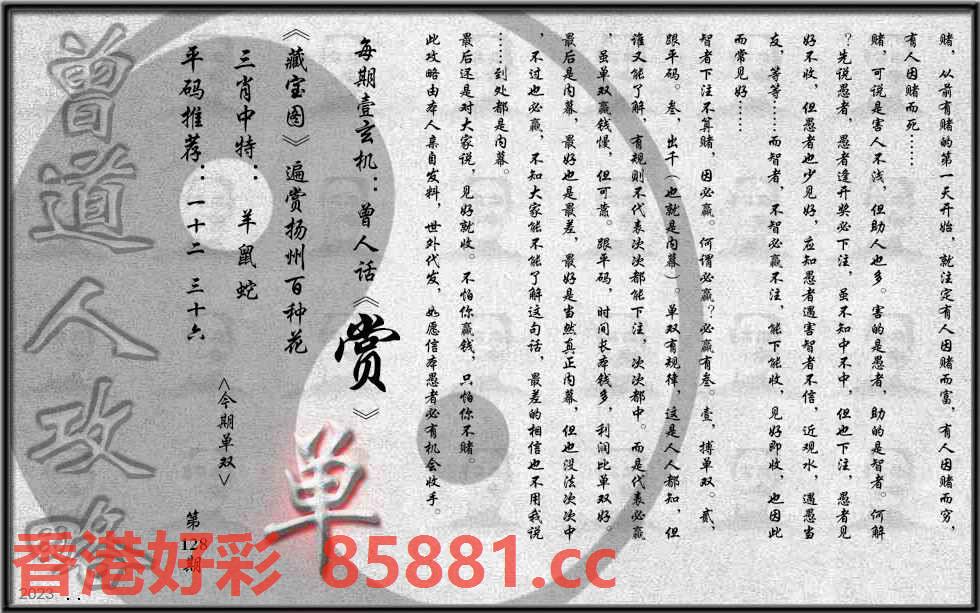 赌，从前有赌的第一天开始，就注定有人因赌而富，有人因赌而穷，
有人因赌而死……
赌，可说是害人不浅，但助人也多。害的是愚者，助的是智者。何解
？先说愚者，愚者逢开奖必下注，虽不知中不中，但也下注，愚者见
好不收，但愚者也少见好，应知愚者遇害智者不信，近观水，遇愚当
友，等等……而智者，不智必赢不注，能下能收，见好即收，也因此
而常见好……
智者下注不算赌，因必赢。何谓必赢？必赢有叁。壹，搏单双。贰，
跟平码。叁，出千（也就是内幕）。单双有规律，这是人人都知，但
谁又能了解，有规则不代表次次都能下注，次次都中。而是代表必赢
，虽单双赢钱慢，但可靠。跟平码，时间长本钱多，利润比单双好。
最后是内幕，最好也是最差，最好是当然真正内幕，但也没法次次中
，不过也必赢，不知大家能不能了解这句话，最差的相信也不用我说
……到处都是内幕。
最后还是对大家说，见好就收。不怕你赢钱，只怕你不赌。
此攻略由本人亲自发料，世外代发，如愿信本愚者必有机会收手。
每期壹玄机：曾人话《赏》
《藏宝图》遍赏扬州百种花
三肖中特： 羊 鼠 蛇
平码推荐：一十二 三十六
<今期单双>
单
第
128
期
曾道人攻略
香港好彩 85881.cc
2023